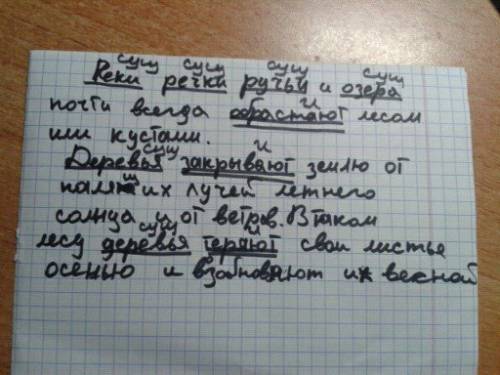 сущ сущ сущ сущ
Реки речки ручьи и озера
и
почти всегда обрастают лесом
или кустами.
сущ и
Деревья закрывают землю от
палящих лучей летнего
солнца и от ветров. В таком
сущ и
лесу деревья теряют свои листье
осенью и взобновяют их весной